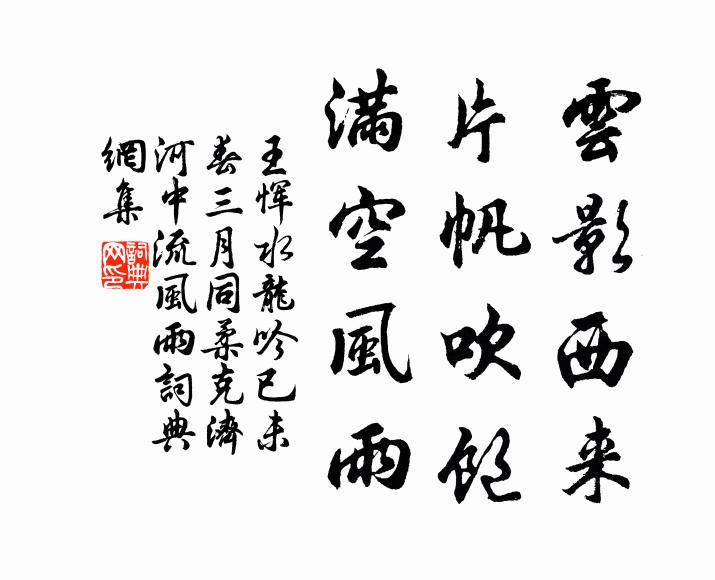 雲影西来
片帆吹飽
滿空風雨
王惲水龍吟已未
春三月同柔克濟
河中流風雨詞典
網集
詞典網印